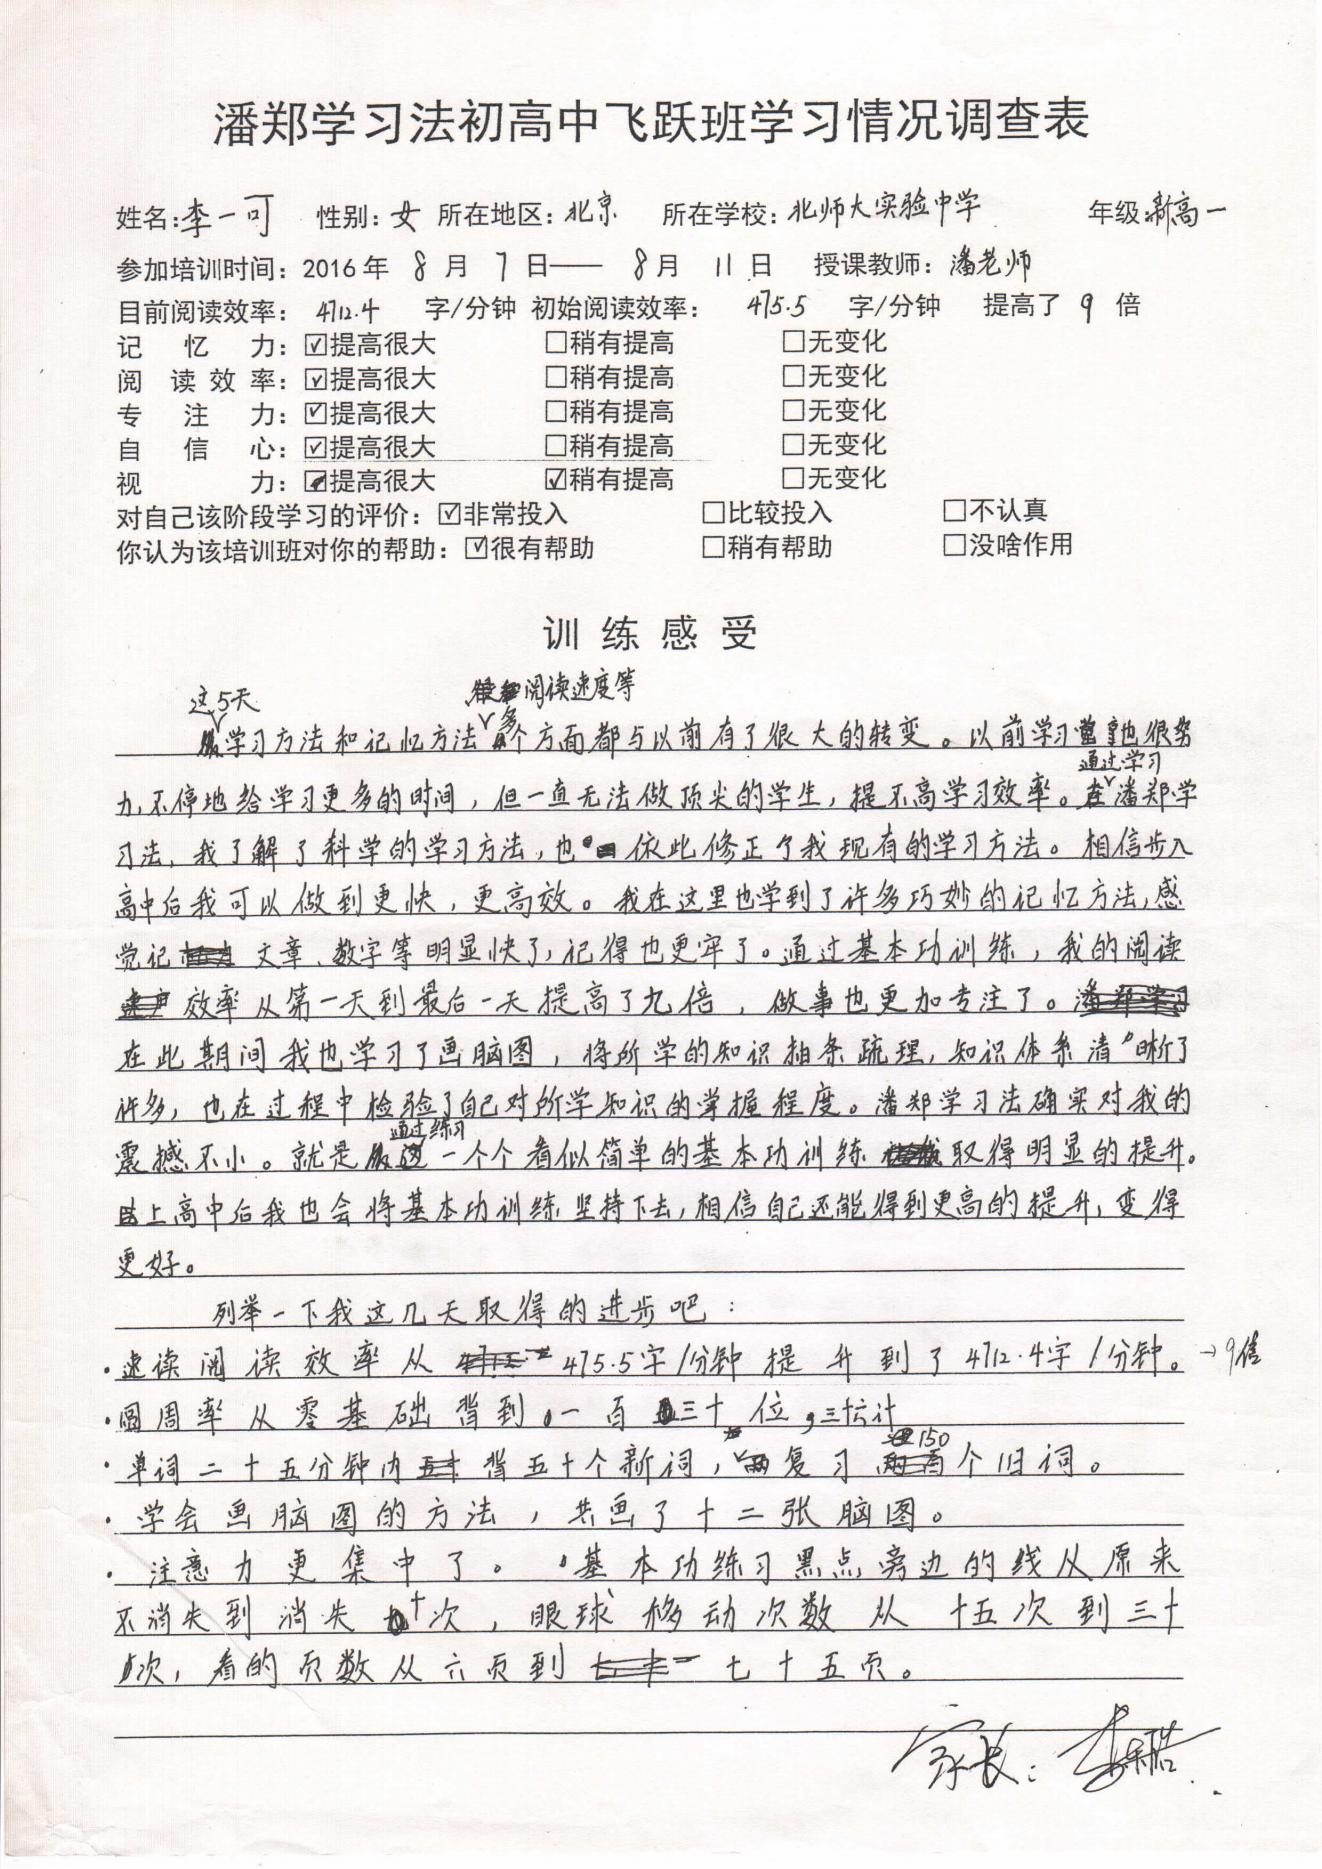 潘郑学习法初高中飞跃班学习情况调查表
姓名:李一可 性别:女 所在地区:北京 所在学校:北师大实验中学 年级:新高一
参加培训时间:2016年 8月 7日—— 8月 11日 授课教师:潘老师
目前阅读效率: 4712.4 字/分钟 初始阅读效率: 475.5 字/分钟 提高了 9 倍
记忆力:☑提高很大 □稍有提高 □无变化
阅读效率:☑提高很大 □稍有提高 □无变化
专注力:☑提高很大 □稍有提高 □无变化
自信心:☑提高很大 □稍有提高 □无变化
视力:提高很大 ☑稍有提高 □无变化
对自己该阶段学习的评价:☑非常投入 □比较投入 □不认真
你认为该培训班对你的帮助:☑很有帮助 □稍有帮助 □没啥作用
训练感受
这5天学习方法和记忆方法阅读速度等多个方面都与以前有了很大的转变。以前学习也很努
力,不停地给学习更多的时间,但一直无法做顶尖的学生,提不高学习效率。通过学习潘郑学
习法,我了解了科学的学习方法,也依此修正了我现有的学习方法。相信步入
高中后我可以做到更快,更高效。我在这里也学到了许多巧妙的记忆方法,感
觉记文章、数字等明显快了,记得也更牢了。通过基本功训练,我的阅读
效率从第一天到最后一天提高了九倍,做事也更加专注了。
在此期间我也学习了画脑图,将所学的知识抽条疏理,知识体系清晰了
许多,也在过程中检验了自己对所学知识的掌握程度。潘郑学习法确实对我的
震撼不小。就是通过练习一个个看似简单的基本功训练取得明显的提升。
上高中后我也会将基本功训练坚持下去,相信自己还能得到更高的提升,变得
更好。
列举一下我这几天取得的进步吧:
·速读阅读效率从475.5字/分钟提升到了4712.4字/分钟。→9倍
·圆周率从零基础背到一百三十位,三十六计
·单词二十五分钟内背五十个新词,复习150个旧词。
·学会画脑图的方法,共画了十二张脑图。
·注意力更集中了。·基本功练习黑点旁边的线从原来
不消失到消失十次,眼球移动次数从十五次到三十
次,看的页数从六页到七十五页。
家长: